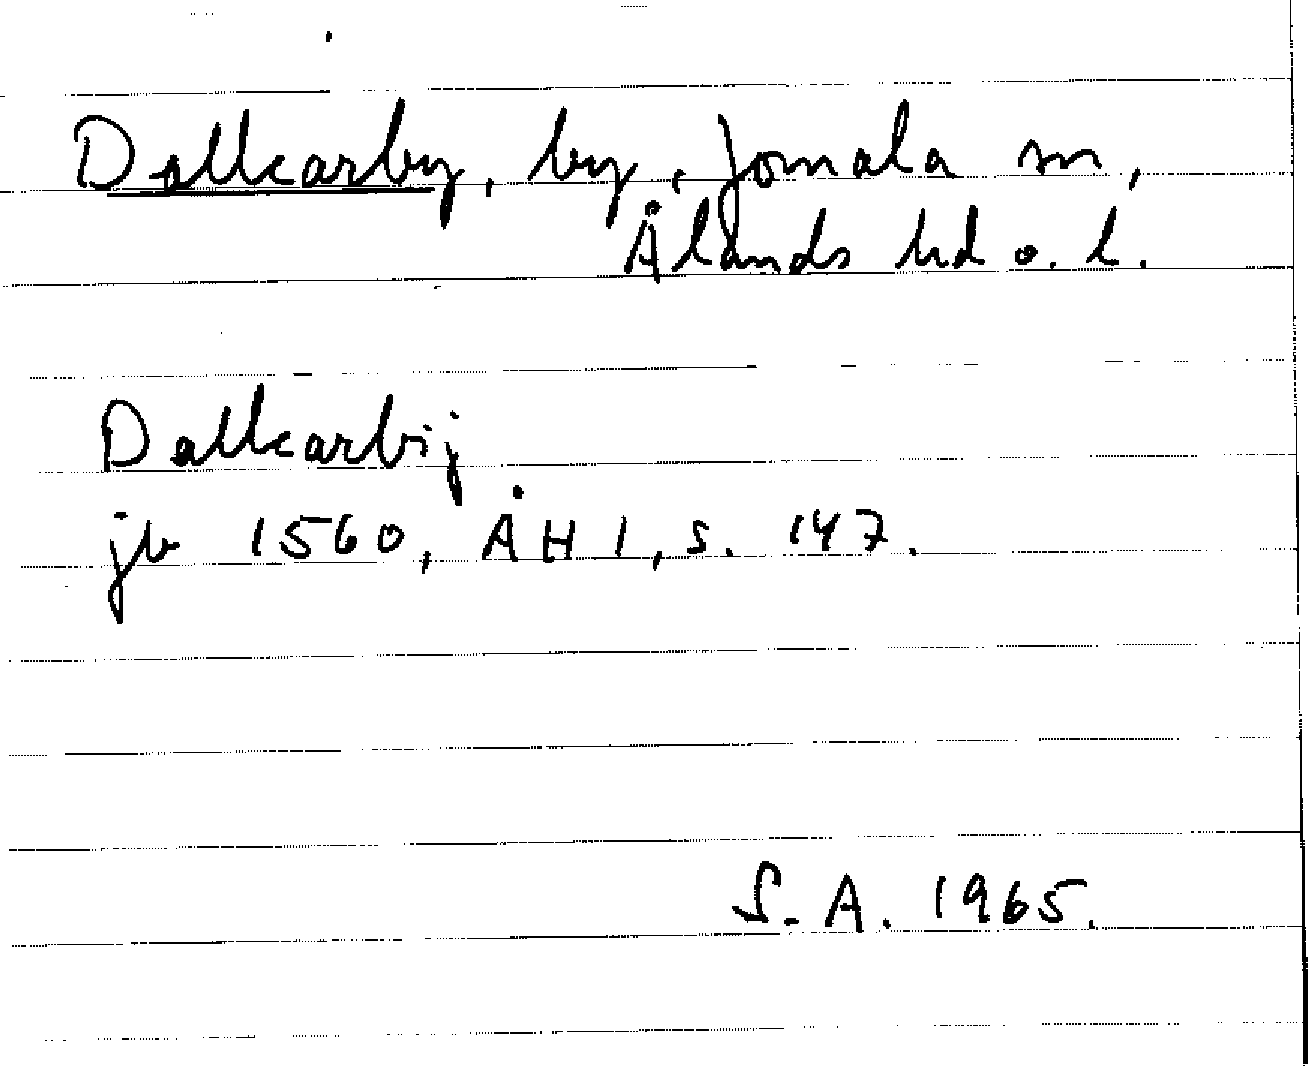 Dalkarby, by, Jomala sn,
Ålands hd o. l.
Dalkarbij
jb 1560, ÅH I, s. 147.
S. A. 1965.